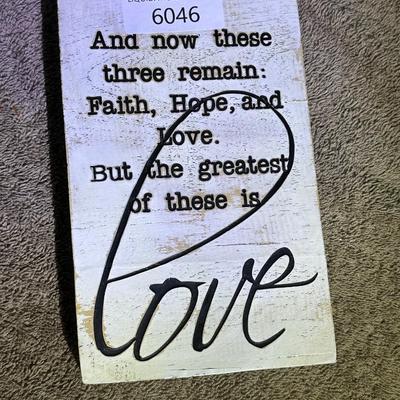 6046
And now these
three remain:
Faith, Hope, and
Love.
But the greatest
of these is
Love